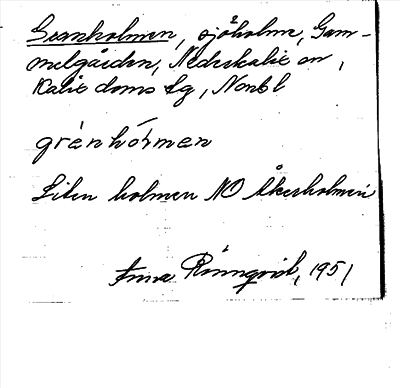 Granholmen, sjöholme, Gam-
melgården, Nederkalix sn,
Kalix doms lg, Nonbl
grènhórmen
Liten holmen NO Åkerholmen
Anna Rönnqvist, 1951